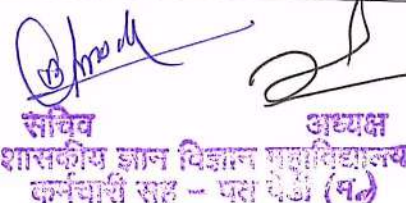 सचिव अध्यक्ष
शासकीय ज्ञान विज्ञान महाविद्यालय
कर्मचारी सह – पत पेढी (म.)